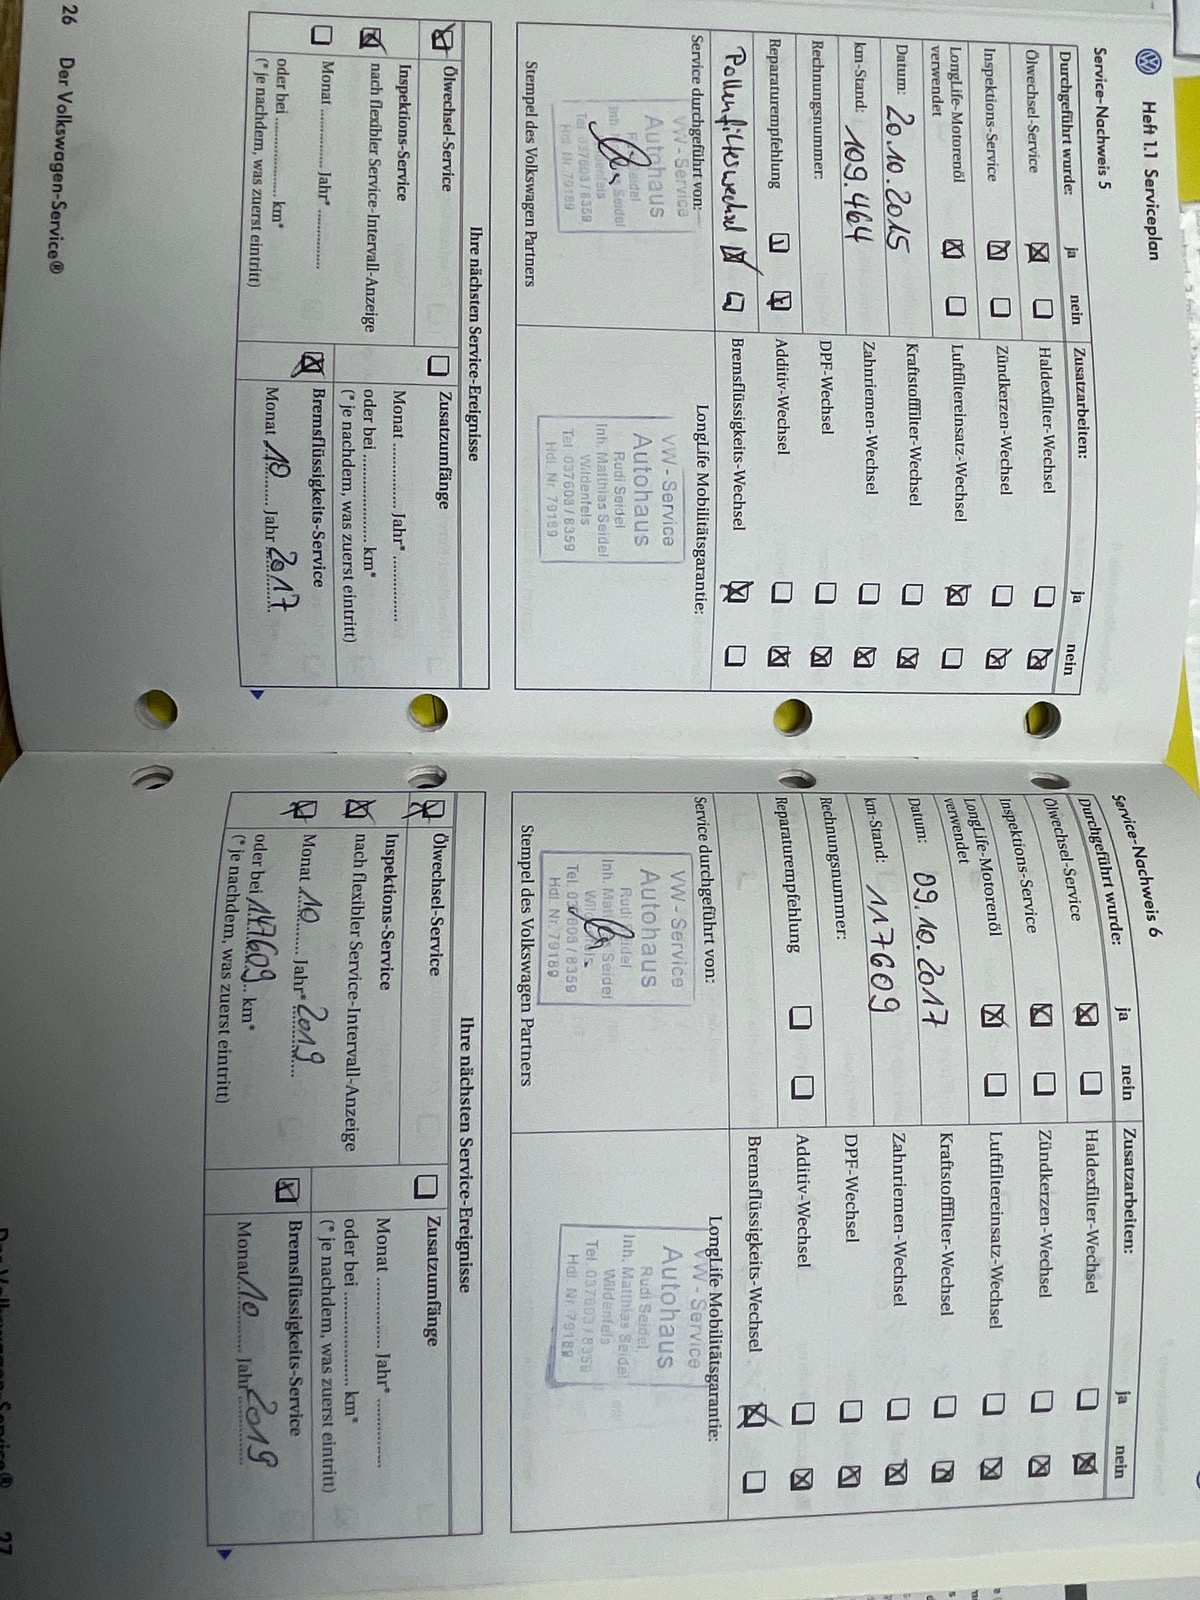 Heft 1.1 Serviceplan
Service-Nachweis 5
Durchgeführt wurde: ja nein
Ölwechsel-Service
Inspektions-Service
LongLife-Motorenöl
verwendet
Datum: 20.10.2015
km-Stand: 109.464
Rechnungsnummer:
Reparaturempfehlung
Pollenfilterwechsel
Service durchgeführt von:
VW-Service
Autohaus
Seidel
Seidel
Tel. 037603/8359
Hdl. Nr. 79189
Stempel des Volkswagen Partners
Zusatzarbeiten: ja nein
Haldexfilter-Wechsel
Zündkerzen-Wechsel
Luftfiltereinsatz-Wechsel
Kraftstofffilter-Wechsel
Zahnriemen-Wechsel
DPF-Wechsel
Additiv-Wechsel
Bremsflüssigkeits-Wechsel
LongLife Mobilitätsgarantie:
VW-Service
Autohaus
Rudi Seidel
Inh. Matthias Seidel
Wildenfels
Tel. 037603/8359
Hdl. Nr. 79189
Ihre nächsten Service-Ereignisse
Ölwechsel-Service
Inspektions-Service
nach flexibler Service-Intervall-Anzeige
Monat ............ Jahr* ............
oder bei .................. km*
(* je nachdem, was zuerst eintritt)
Zusatzumfänge
Monat ............ Jahr* ............
oder bei .................. km*
(* je nachdem, was zuerst eintritt)
Bremsflüssigkeits-Service
Monat 10 Jahr 2017
26 Der Volkswagen-Service®
Service-Nachweis 6
Durchgeführt wurde: ja nein
Ölwechsel-Service
Inspektions-Service
LongLife-Motorenöl
verwendet
Datum: 09.10.2017
km-Stand: 117609
Rechnungsnummer:
Reparaturempfehlung
Service durchgeführt von:
VW-Service
Autohaus
Rudi Seidel
Inh. Seidel
Hdl. Nr. 79189
Stempel des Volkswagen Partners
Zusatzarbeiten: ja nein
Haldexfilter-Wechsel
Zündkerzen-Wechsel
Luftfiltereinsatz-Wechsel
Kraftstofffilter-Wechsel
Zahnriemen-Wechsel
DPF-Wechsel
Additiv-Wechsel
Bremsflüssigkeits-Wechsel
LongLife Mobilitätsgarantie:
VW-Service
Autohaus
Rudi Seidel
Inh. Matthias Seidel
Wildenfels
Tel. 037603/8359
Hdl. Nr. 79189
Ihre nächsten Service-Ereignisse
Ölwechsel-Service
Inspektions-Service
nach flexibler Service-Intervall-Anzeige
Monat 10 Jahr* 2019
oder bei 147609 km*
(* je nachdem, was zuerst eintritt)
Zusatzumfänge
Monat ............ Jahr* ............
oder bei .................. km*
(* je nachdem, was zuerst eintritt)
Bremsflüssigkeits-Service
Monat 10 Jahr 2019
27